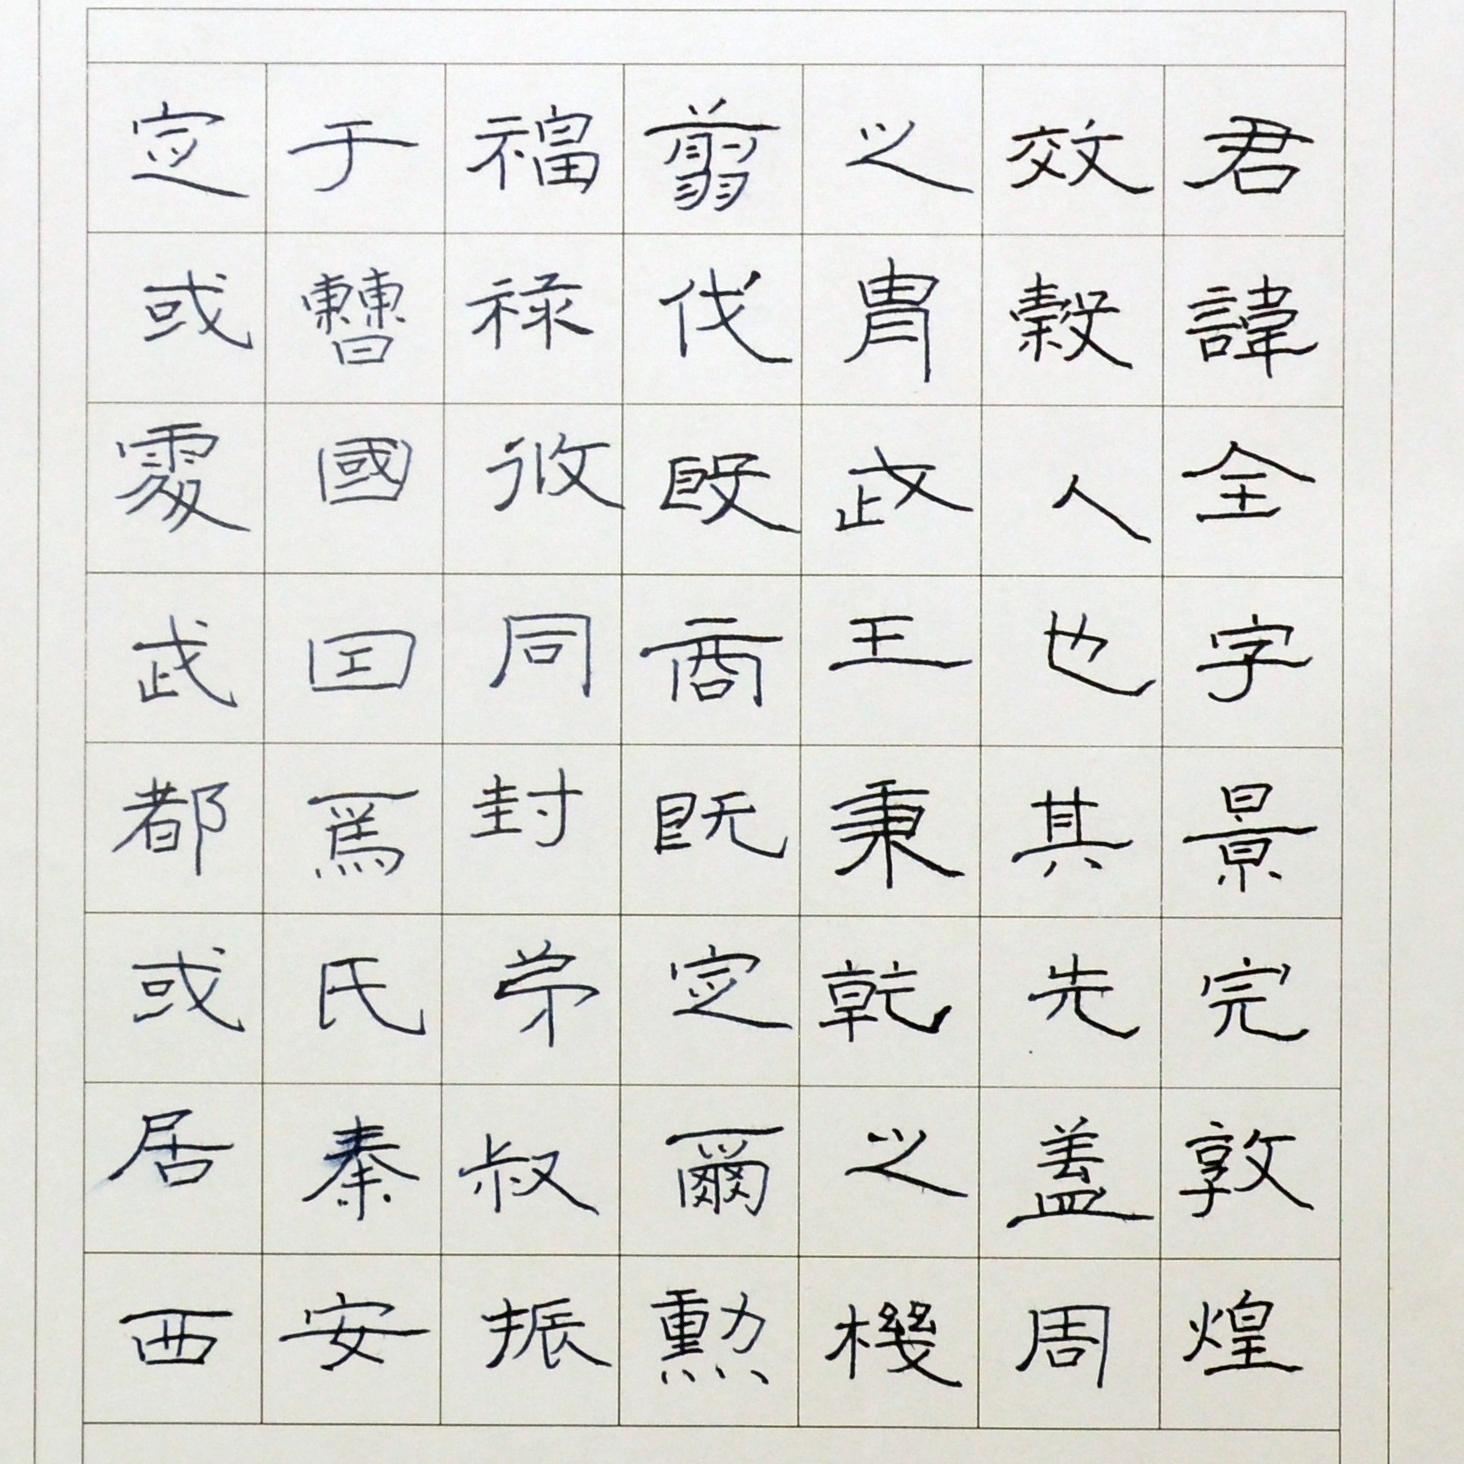 君諱全字景完敦煌
效穀人也其先盖周
之胄武王秉乾之機
翦伐殷商既定爾勳
福禄攸同封弟叔振
于曹國因焉氏秦安
定或處武都或居西